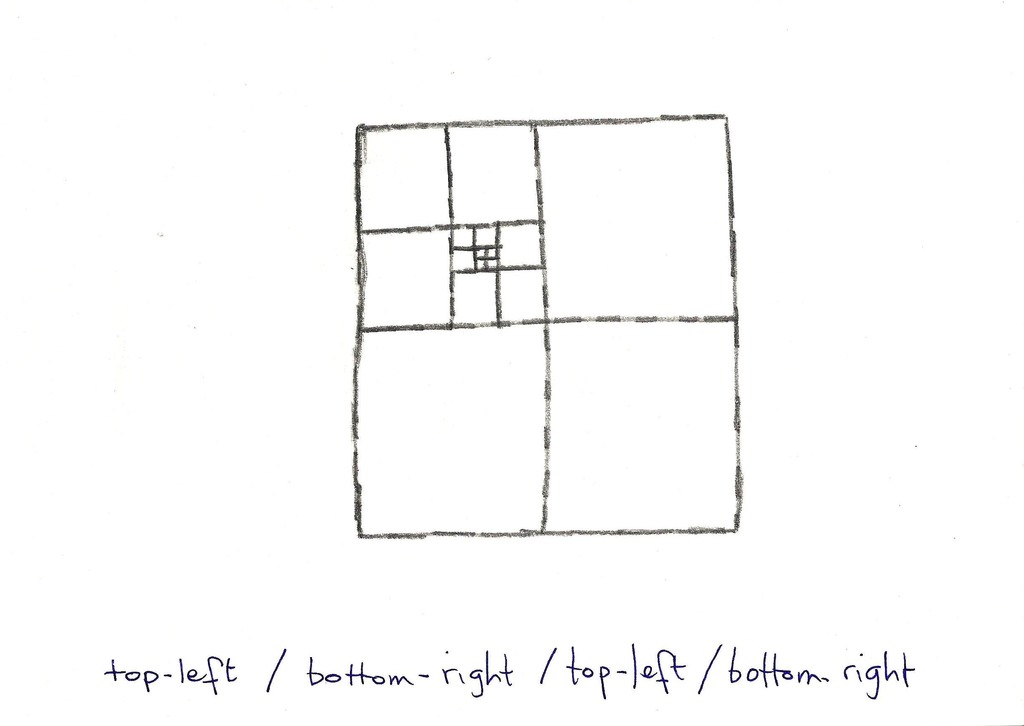 top-left / bottom-right / top-left / bottom-right